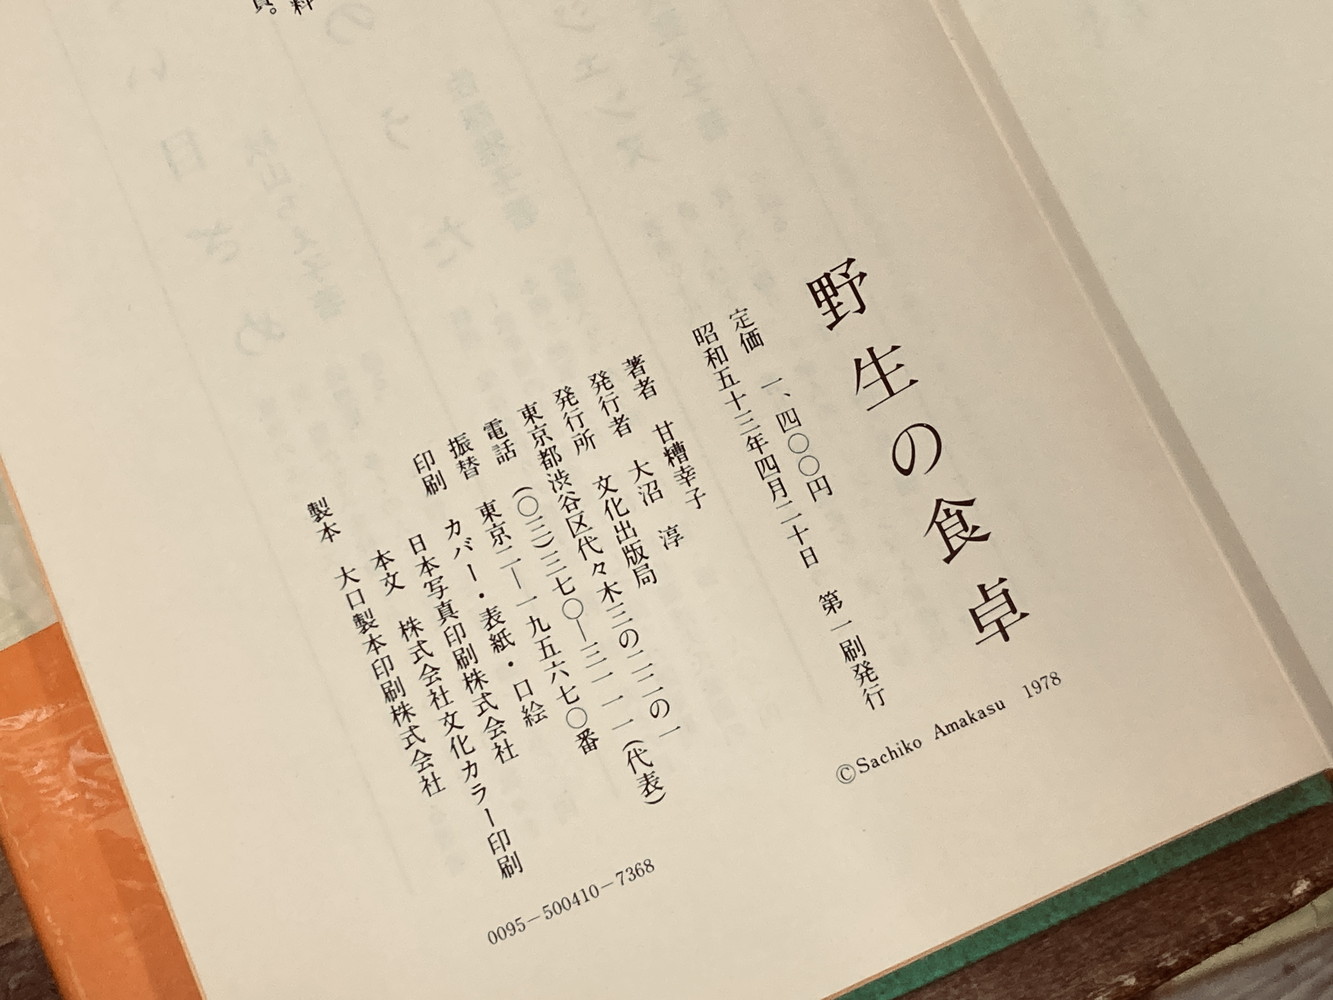 野生の食卓
©Sachiko Amakasu 1978
定価 一、四〇〇円
昭和五十三年四月二十日 第一刷発行
著者 甘糟幸子
発行者 大沼 淳
発行所 文化出版局
東京都渋谷区代々木三の二二の一
電話 (〇三)三七〇―三一一一(代表)
振替 東京二―一九五六七〇番
印刷 カバー・表紙・口絵
日本写真印刷株式会社
本文 株式会社文化カラー印刷
製本 大口製本印刷株式会社
0095-500410-7368